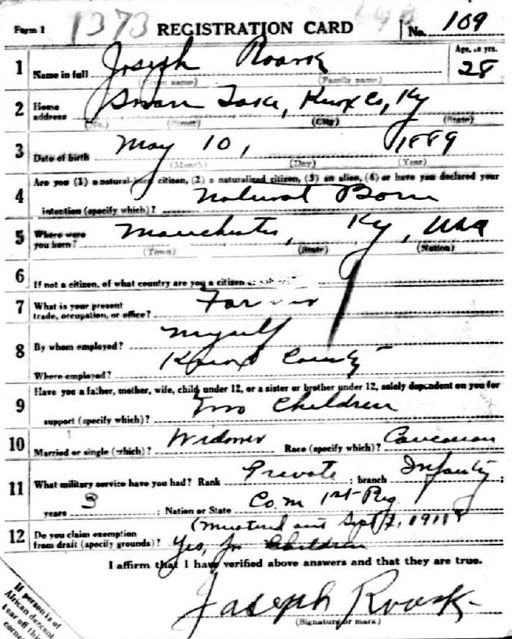 Form 1 1373 REGISTRATION CARD No. 109
Age, in yrs.
1 Name in full Joseph Roark 28
(Family name)
2 Home address Swan Lake, Knox Co, Ky
(No.) (Street) (City) (State)
3 Date of birth May 10, 1889
(Month) (Day) (Year)
Are you (1) a natural-born citizen, (2) a naturalized citizen, (3) an alien, (4) or have you declared your
4 intention (specify which)? Natural Born
5 Where were you born? Manchester, Ky, USA
(Town) (State) (Nation)
6 If not a citizen, of what country are you a citizen
7 What is your present trade, occupation, or office? Farmer
8 By whom employed? Myself
Where employed? Knox County
Have you a father, mother, wife, child under 12, or a sister or brother under 12, solely dependent on you for
9 support (specify which)? Two Children
10 Married or single (which)? Widower Race (specify which)? Caucasian
11 What military service have you had? Rank Private ; branch Infantry ;
years 3 ; Nation or State Co. M 1st Reg
(Mustered out Sept
12 Do you claim exemption from draft (specify grounds)? Yes, for Children
I affirm that I have verified above answers and that they are true.
Joseph Roark
(Signature or mark)
If person is of
African descent
tear off this
corner